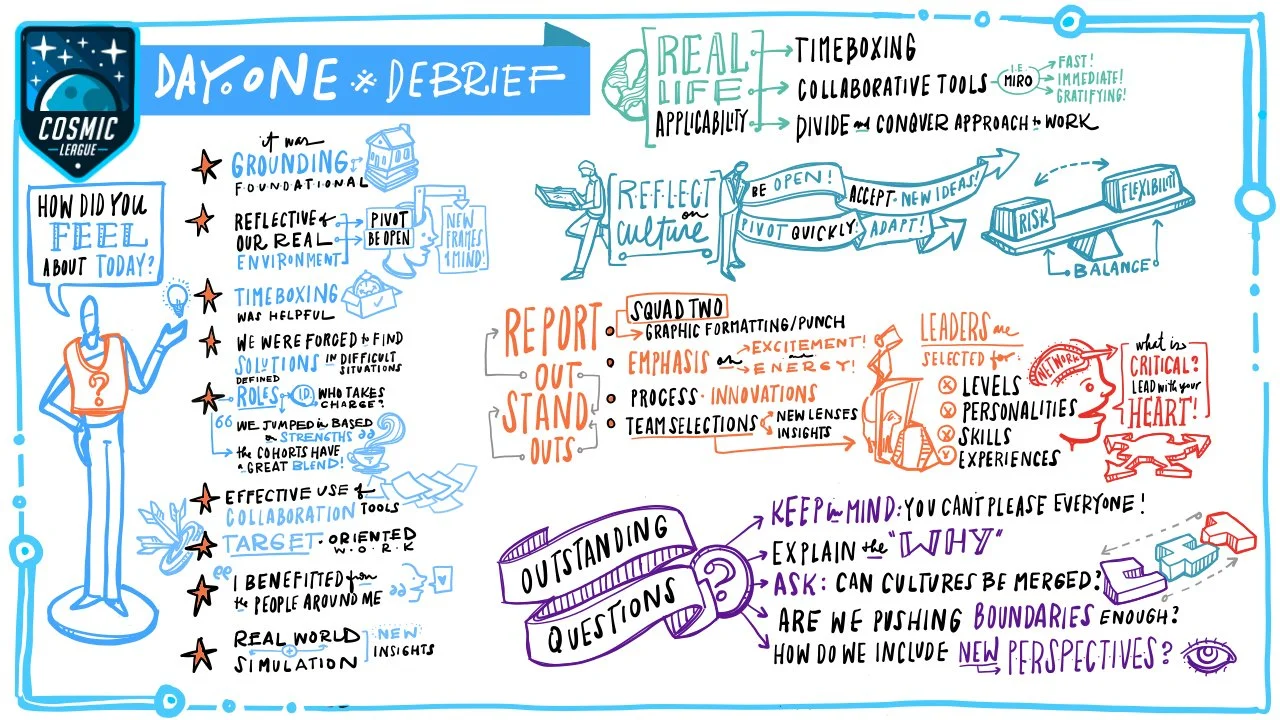 COSMIC
LEAGUE
DAY ONE * DEBRIEF
HOW DID YOU
FEEL
ABOUT TODAY?
?
it was
GROUNDING
FOUNDATIONAL
REFLECTIVE of
OUR REAL
ENVIRONMENT
PIVOT
BE OPEN
NEW
FRAMES
of MIND!
TIMEBOXING
WAS HELPFUL
WE WERE FORCED to FIND
SOLUTIONS IN DIFFICULT
SITUATIONS
DEFINED
ROLES
ID
WHO TAKES
CHARGE?
"WE JUMPED in BASED
on STRENGTHS"
the COHORTS HAVE
a GREAT BLEND!
EFFECTIVE USE of
COLLABORATION TOOLS
TARGET-ORIENTED
W.O.R.K
"I BENEFITTED from
the PEOPLE AROUND ME"
REAL WORLD
+
SIMULATION
NEW
INSIGHTS
REAL
LIFE
APPLICABILITY
TIMEBOXING
COLLABORATIVE TOOLS
I.E.
MIRO
FAST!
IMMEDIATE!
GRATIFYING!
DIVIDE and CONQUER APPROACH to WORK
REFLECT
on
culture
BE OPEN!
ACCEPT NEW IDEAS!
PIVOT QUICKLY!
ADAPT!
RISK
FLEXIBILITY
BALANCE
REPORT
OUT
STAND
OUTS
SQUAD TWO
GRAPHIC FORMATTING/PUNCH
EMPHASIS on EXCITEMENT!
and
ENERGY!
PROCESS · INNOVATIONS
TEAM SELECTIONS
NEW LENSES
INSIGHTS
LEADERS are
SELECTED for:
LEVELS
PERSONALITIES
SKILLS
EXPERIENCES
NETWORK
what is
CRITICAL?
LEAD with your
HEART!
OUTSTANDING
QUESTIONS
?
KEEP in MIND: YOU CAN'T PLEASE EVERYONE!
EXPLAIN the "WHY"
ASK: CAN CULTURES BE MERGED?
ARE WE PUSHING BOUNDARIES ENOUGH?
HOW DO WE INCLUDE NEW PERSPECTIVES?